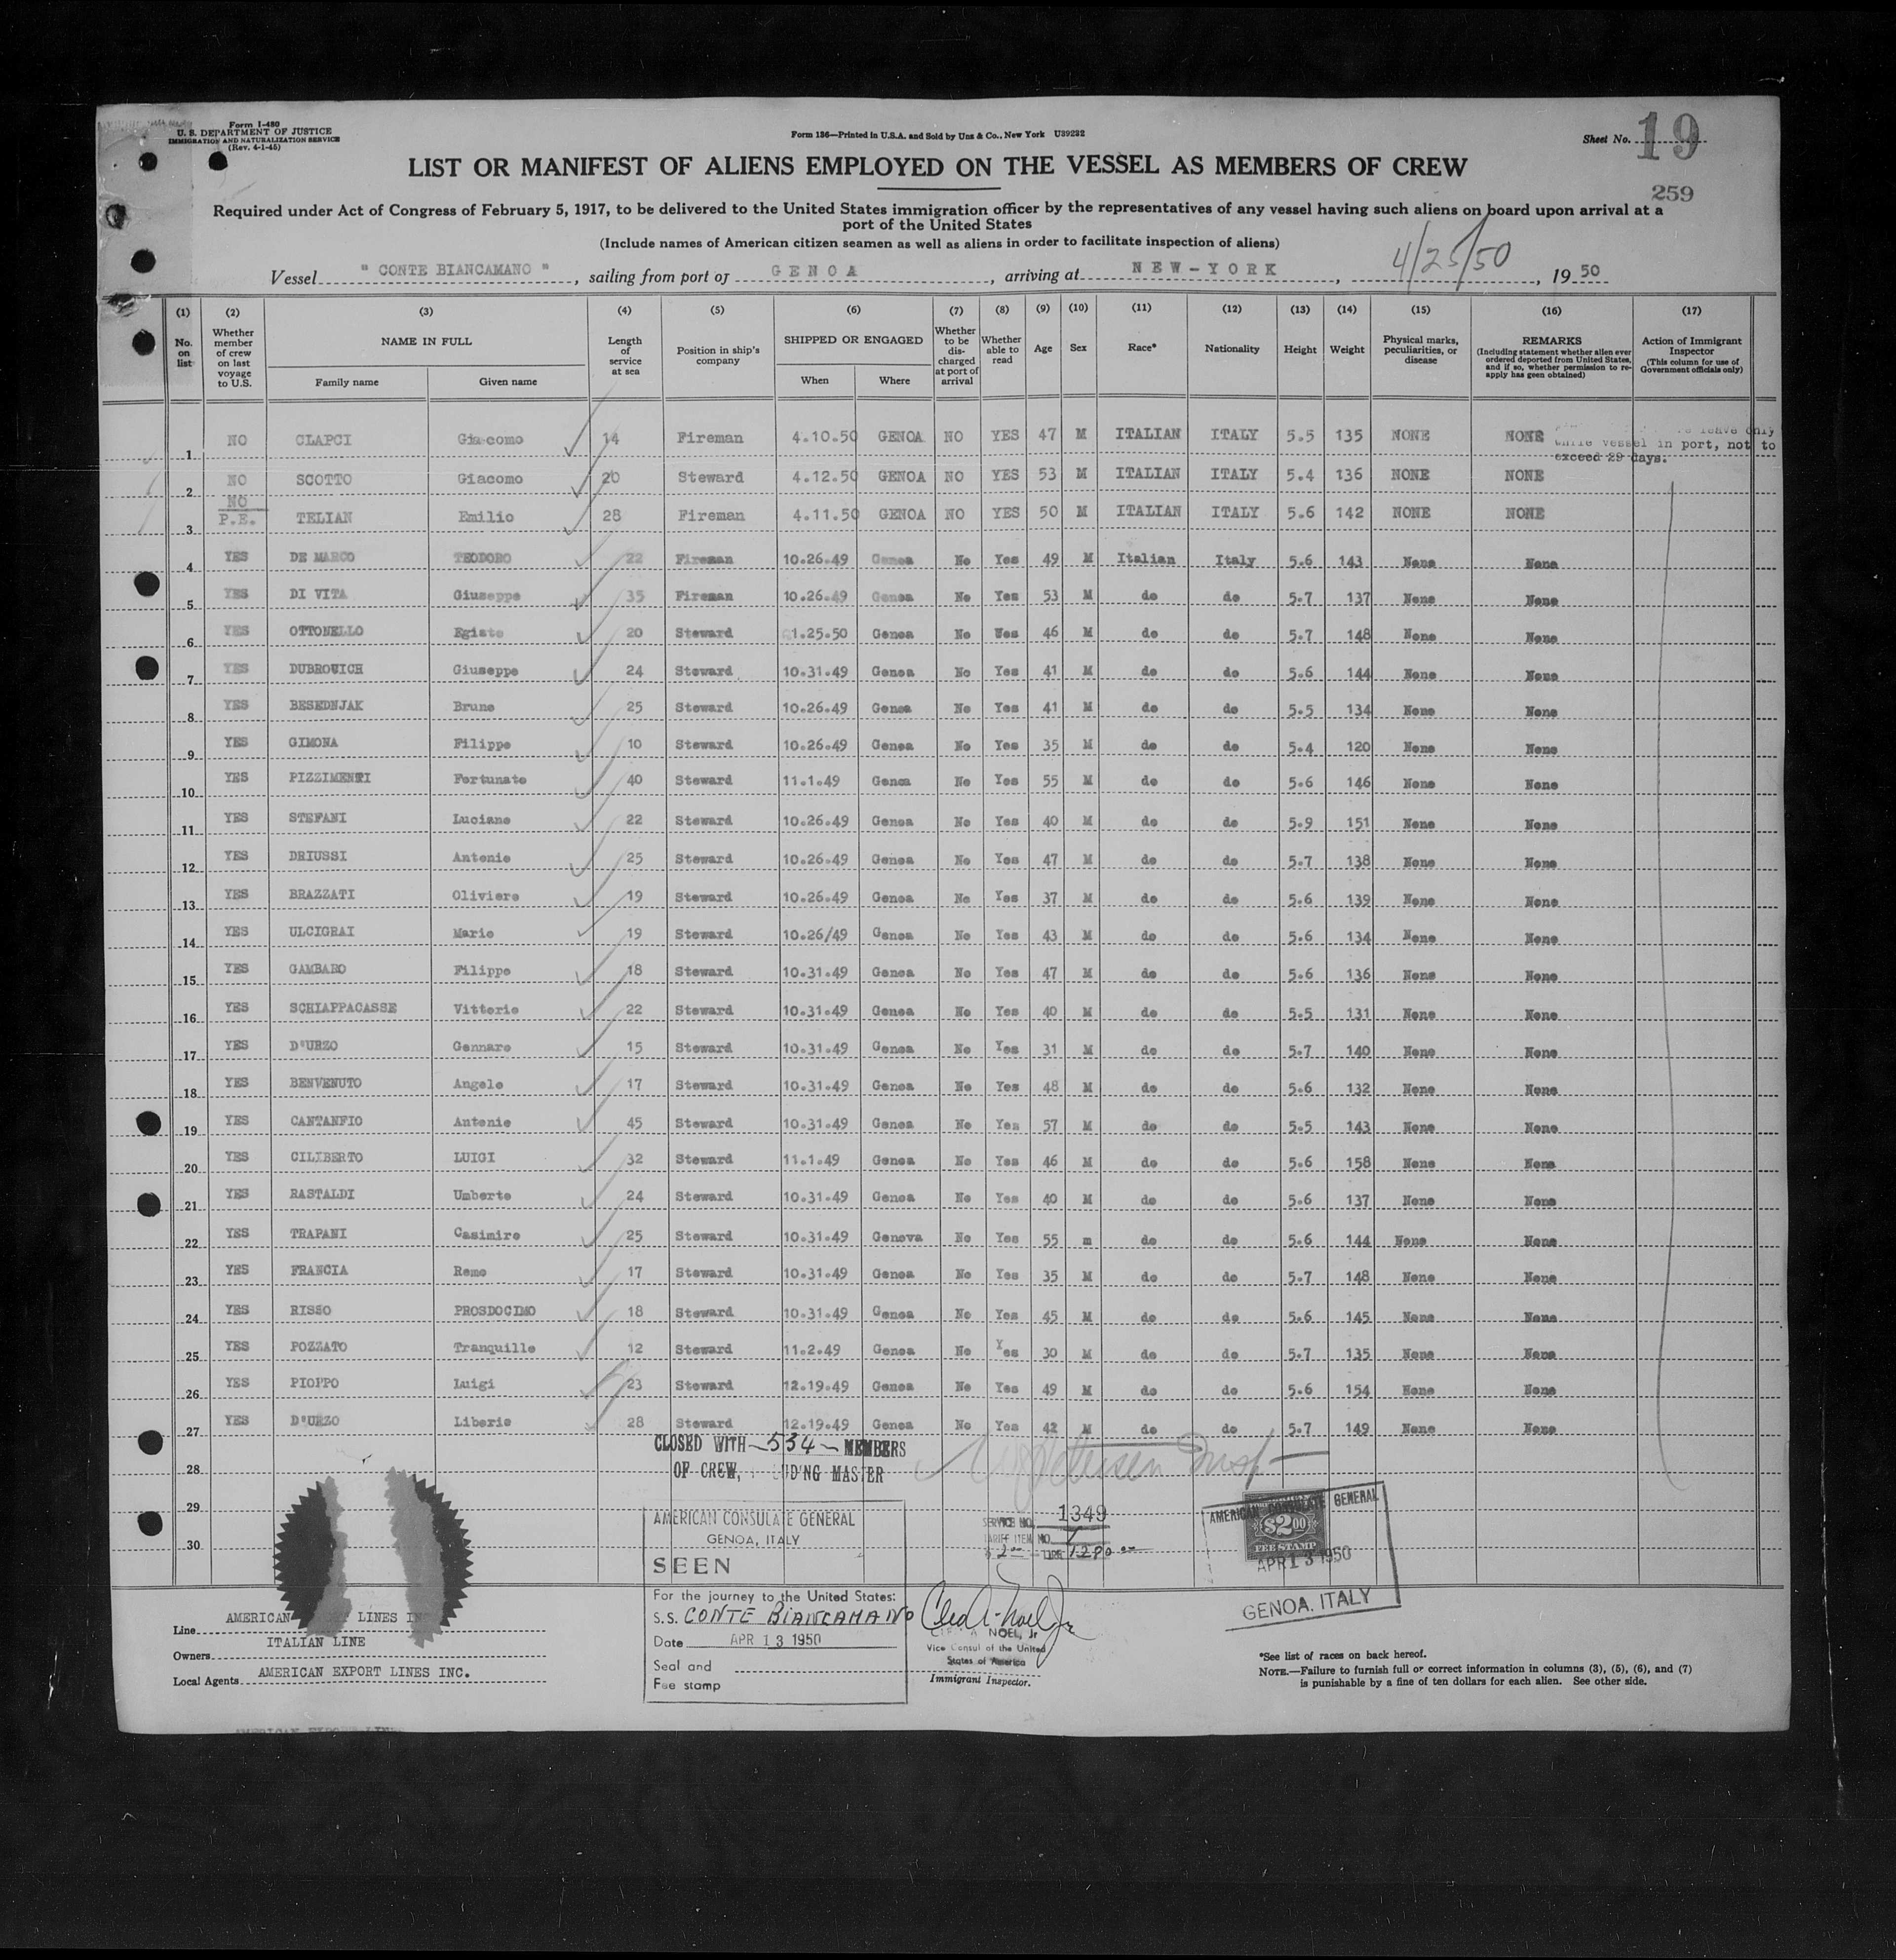 Form I-480
U. S. DEPARTMENT OF JUSTICE
IMMIGRATION AND NATURALIZATION SERVICE
(Rev. 4-1-45)
Form 136—Printed in U.S.A. and Sold by Unz & Co., New York U39232
Sheet No. 19
LIST OR MANIFEST OF ALIENS EMPLOYED ON THE VESSEL AS MEMBERS OF CREW
259
Required under Act of Congress of February 5, 1917, to be delivered to the United States immigration officer by the representatives of any vessel having such aliens on board upon arrival at a
port of the United States
(Include names of American citizen seamen as well as aliens in order to facilitate inspection of aliens)
Vessel " CONTE BIANCAMANO ", sailing from port of GENOA, arriving at NEW-YORK, 4/25/50, 19 50
(1) (2) (3) (4) (5) (6) (7) (8) (9) (10) (11) (12) (13) (14) (15) (16) (17)
No. on list
Whether member of crew on last voyage to U.S.
NAME IN FULL
Family name Given name
Length of service at sea
Position in ship's company
SHIPPED OR ENGAGED
When Where
Whether to be discharged at port of arrival
Whether able to read
Age Sex Race* Nationality Height Weight
Physical marks, peculiarities, or disease
REMARKS
(Including statement whether alien ever ordered deported from United States, and if so, whether permission to re-apply has geen obtained)
Action of Immigrant Inspector
(This column for use of Government officials only)
leave only
while vessel in port, not to
exceed 29 days.
1 NO CLAPCI Giacomo 14 Fireman 4.10.50 GENOA NO YES 47 M ITALIAN ITALY 5.5 135 NONE NONE
2 NO SCOTTO Giacomo 20 Steward 4.12.50 GENOA NO YES 53 M ITALIAN ITALY 5.4 136 NONE NONE
3 NO P.E. TELIAN Emilio 28 Fireman 4.11.50 GENOA NO YES 50 M ITALIAN ITALY 5.6 142 NONE NONE
4 YES DE MARCO TEODORO 22 Fireman 10.26.49 Genoa No Yes 49 M Italian Italy 5.6 143 None None
5 YES DI VITA Giuseppe 35 Fireman 10.26.49 Genoa No Yes 53 M do do 5.7 137 None None
6 YES OTTONELLO Egisto 20 Steward 1.25.50 Genoa No Wes 46 M do do 5.7 148 None None
7 YES DUBROVICH Giuseppe 24 Steward 10.31.49 Genoa No Yes 41 M do do 5.6 144 None None
8 YES BESEDNJAK Bruno 25 Steward 10.26.49 Genoa No Yes 41 M do do 5.5 134 None None
9 YES GIMONA Filippo 10 Steward 10.26.49 Genoa No Yes 35 M do do 5.4 120 None None
10 YES PIZZIMENTI Fortunato 40 Steward 11.1.49 Genoa No Yes 55 M do do 5.6 146 None None
11 YES STEFANI Luciano 22 Steward 10.26.49 Genoa No Yes 40 M do do 5.9 151 None None
12 YES DRIUSSI Antonio 25 Steward 10.26.49 Genoa No Yes 47 M do do 5.7 138 None None
13 YES BRAZZATI Oliviero 19 Steward 10.26.49 Genoa No Yes 37 M do do 5.6 139 None None
14 YES ULCIGRAI Mario 19 Steward 10.26/49 Genoa No Yes 43 M do do 5.6 134 None None
15 YES GAMBARO Filippo 18 Steward 10.31.49 Genoa No Yes 47 M do do 5.6 136 None None
16 YES SCHIAPPACASSE Vittorio 22 Steward 10.31.49 Genoa No Yes 40 M do do 5.5 131 None None
17 YES D'URZO Gennaro 15 Steward 10.31.49 Genoa No Yes 31 M do do 5.7 140 None None
18 YES BENVENUTO Angelo 17 Steward 10.31.49 Genoa No Yes 48 M do do 5.6 132 None None
19 YES CANTANFIO Antonio 45 Steward 10.31.49 Genoa No Yes 57 M do do 5.5 143 None None
20 YES CILIBERTO LUIGI 32 Steward 11.1.49 Genoa No Yes 46 M do do 5.6 158 None None
21 YES RASTALDI Umberto 24 Steward 10.31.49 Genoa No Yes 40 M do do 5.6 137 None None
22 YES TRAPANI Casimiro 25 Steward 10.31.49 Genova No Yes 55 m do do 5.6 144 None None
23 YES FRANCIA Remo 17 Steward 10.31.49 Genoa No Yes 35 M do do 5.7 148 None None
24 YES RISSO PROSDOCIMO 18 Steward 10.31.49 Genoa No Yes 45 M do do 5.6 145 None None
25 YES POZZATO Tranquillo 12 Steward 11.2.49 Genoa No Yes 30 M do do 5.7 135 None None
26 YES PIOPPO Luigi 23 Steward 12.19.49 Genoa No Yes 49 M do do 5.6 154 None None
27 YES D'URZO Liborio 28 Steward 12.19.49 Genoa No Yes 42 M do do 5.7 149 None None
28
29
30
CLOSED WITH 534 MEMBERS
OF CREW, UD'NG MASTER
AMERICAN CONSULATE GENERAL
GENOA, ITALY
SEEN
For the journey to the United States:
S.S. CONTE BIANCAMANO
Date APR 13 1950
Seal and
Fee stamp
SERVICE NO. 1349
TARIFF ITEM NO. 7
AMERICAN CONSULATE GENERAL
$2.00
FEE STAMP
APR 13 1950
GENOA, ITALY
NOEL, Jr
Vice Consul of the United
States of America
Immigrant Inspector.
Line AMERICAN LINES IN
Owners ITALIAN LINE
Local Agents AMERICAN EXPORT LINES INC.
*See list of races on back hereof.
NOTE.—Failure to furnish full or correct information in columns (3), (5), (6), and (7)
is punishable by a fine of ten dollars for each alien. See other side.
AMERICAN EXPORT LINE